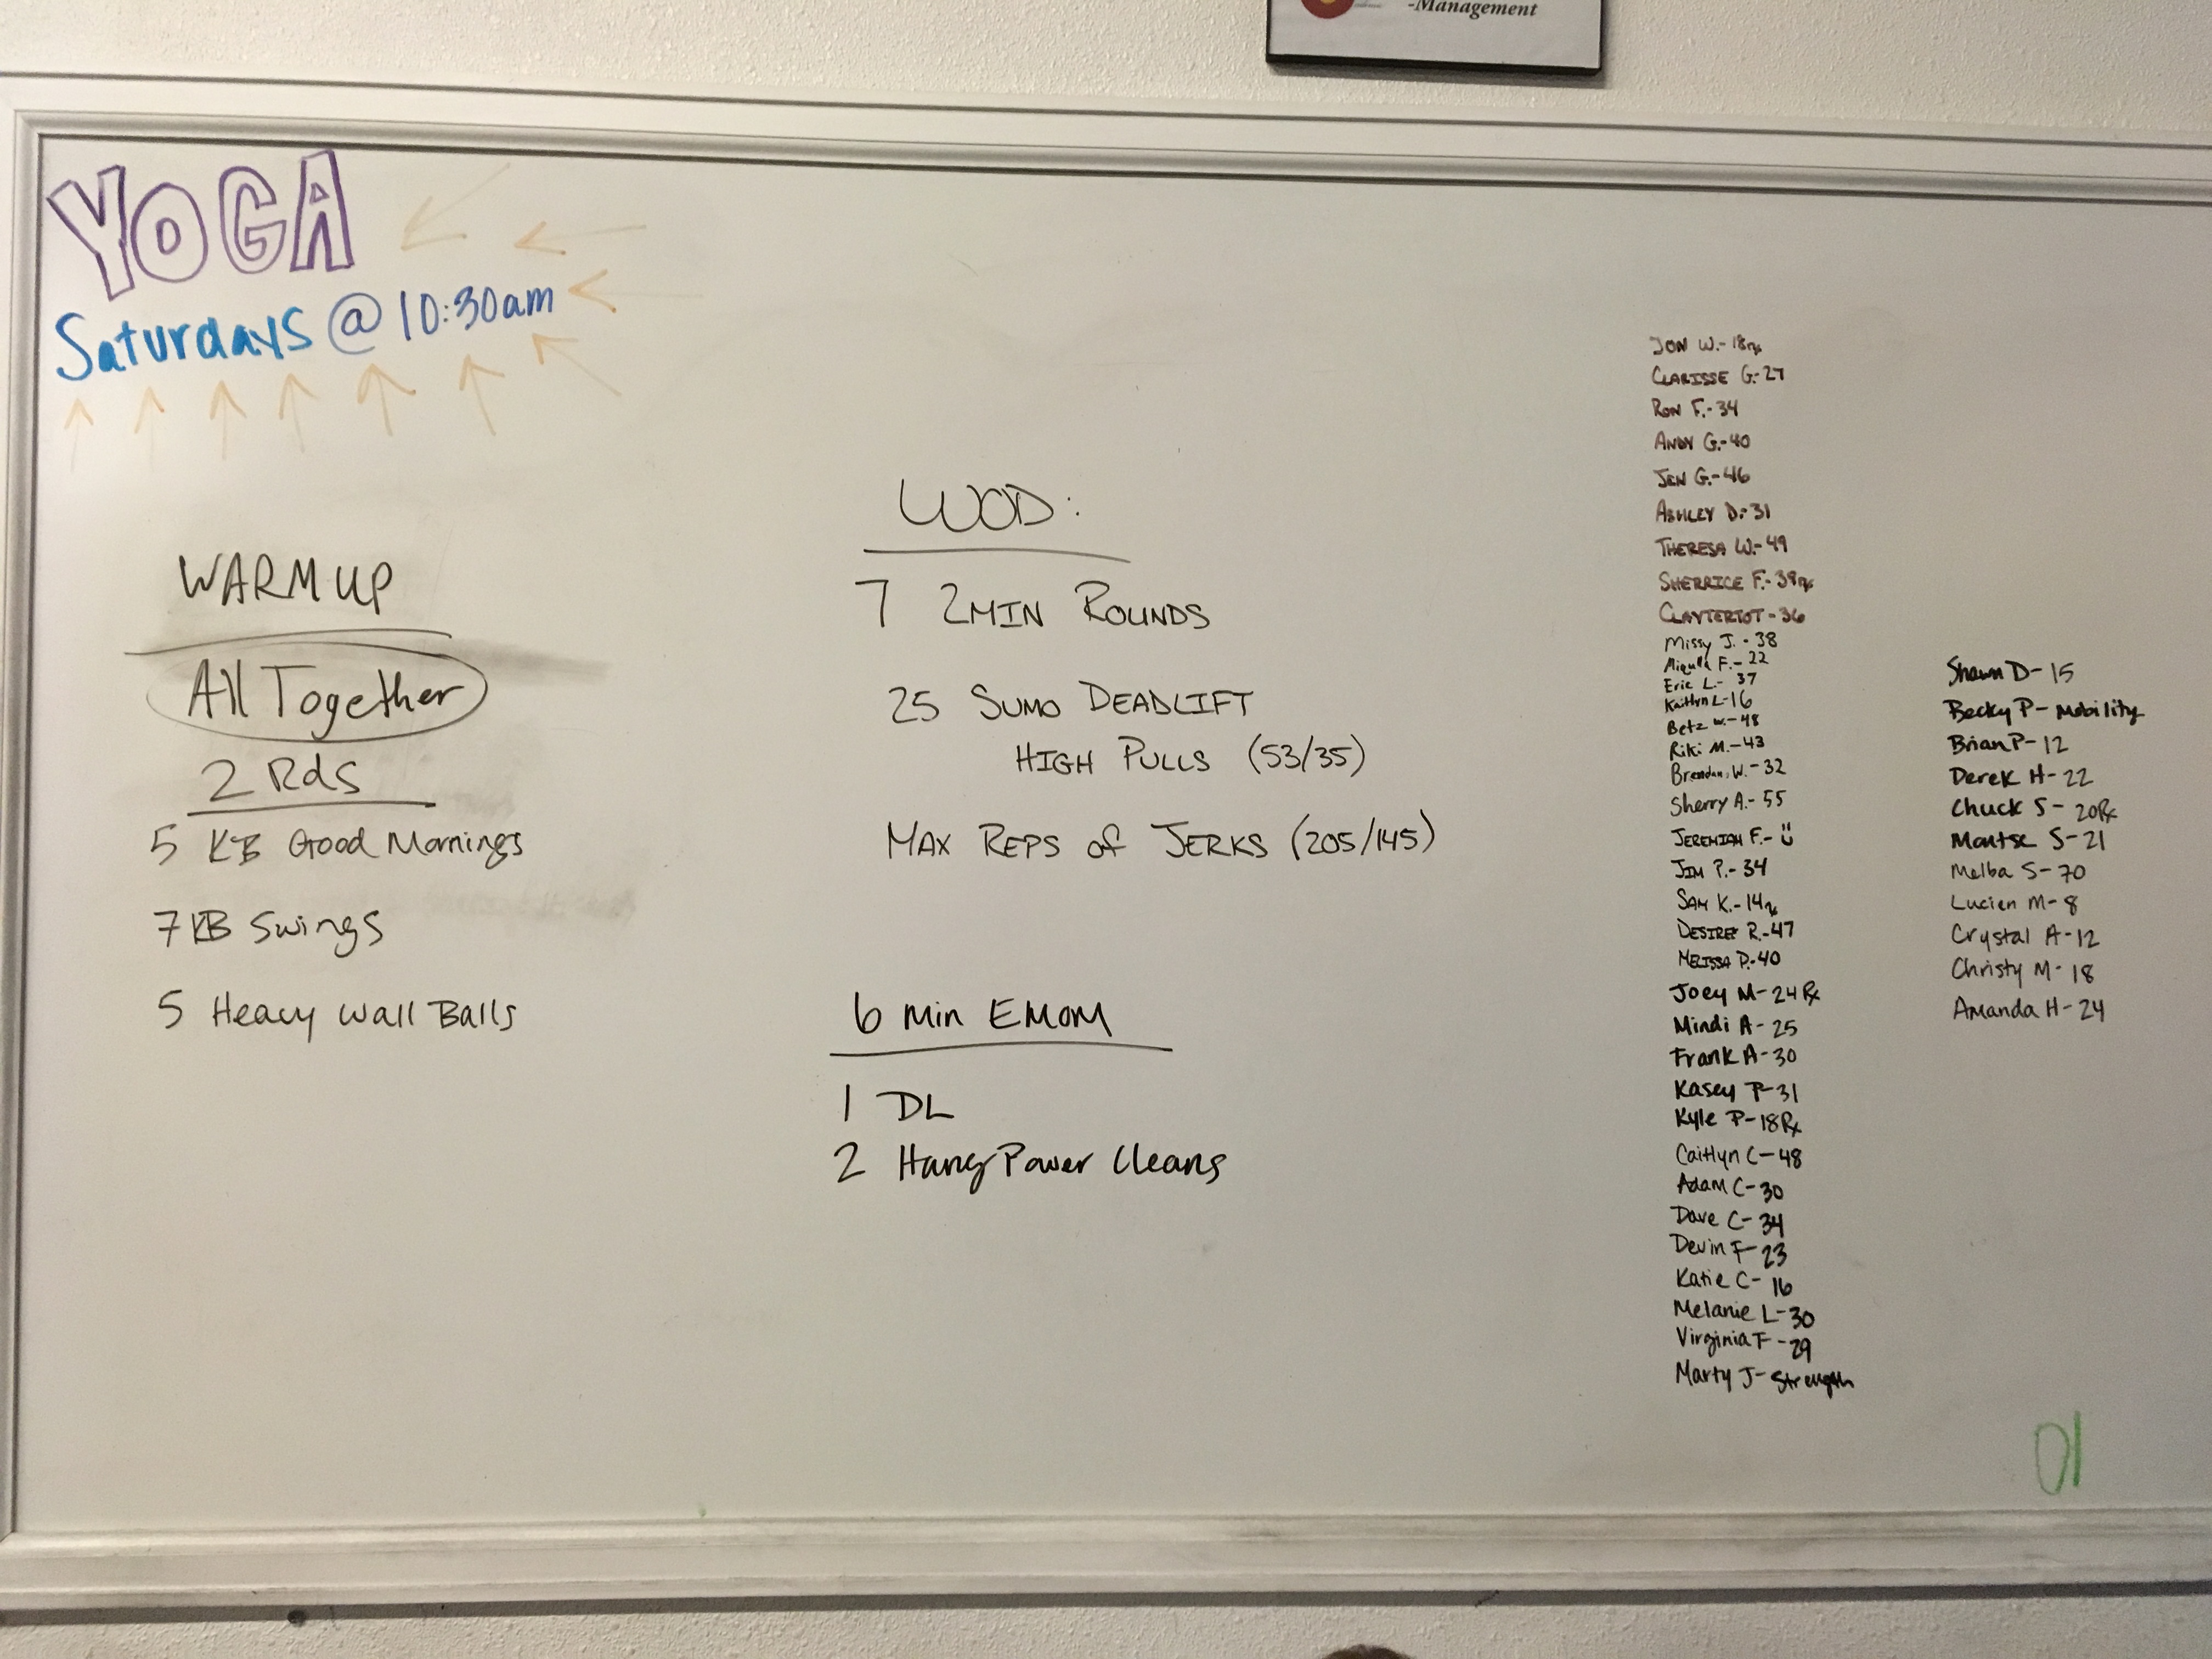 -Management
YOGA
Saturdays @ 10:30am
WARM UP
All Together
2 Rds
5 KB Good Mornings
7 KB Swings
5 Heavy Wall Balls
WOD:
7 2MIN ROUNDS
25 SUMO DEADLIFT
HIGH PULLS (53/35)
MAX REPS of JERKS (205/145)
6 Min EMOM
1 DL
2 Hang Power Cleans
JON W.- 18rx
CLARISSE G.- 27
RON F.- 34
ANDY G.- 40
JEN G.- 46
ASHLEY D.- 31
THERESA W.- 49
SHERRICE F.- 38rx
CLAYTERIOT - 36
Missy J. - 38
F.- 22
Eric L.- 37
Kaitlyn L- 16
Betz W.- 48
Riki M.- 43
Brendan W.- 32
Sherry A.- 55
JEREMIAH F.-
JIM P.- 34
SAM K.- 14rx
DESIREE R.- 47
MELISSA P.- 40
Joey M- 24 Rx
Mindi A- 25
Frank A- 30
Kasey P- 31
Kyle P- 18Rx
Caitlyn C- 48
Adam C- 30
Dave C- 34
Devin F- 23
Katie C- 16
Melanie L- 30
Virginia F- 29
Marty J- Strength
Shawn D- 15
Becky P- Mobility
Brian P- 12
Derek H- 22
Chuck S- 20Rx
Montse S- 21
Melba S- 70
Lucien M- 8
Crystal A- 12
Christy M- 18
Amanda H- 24